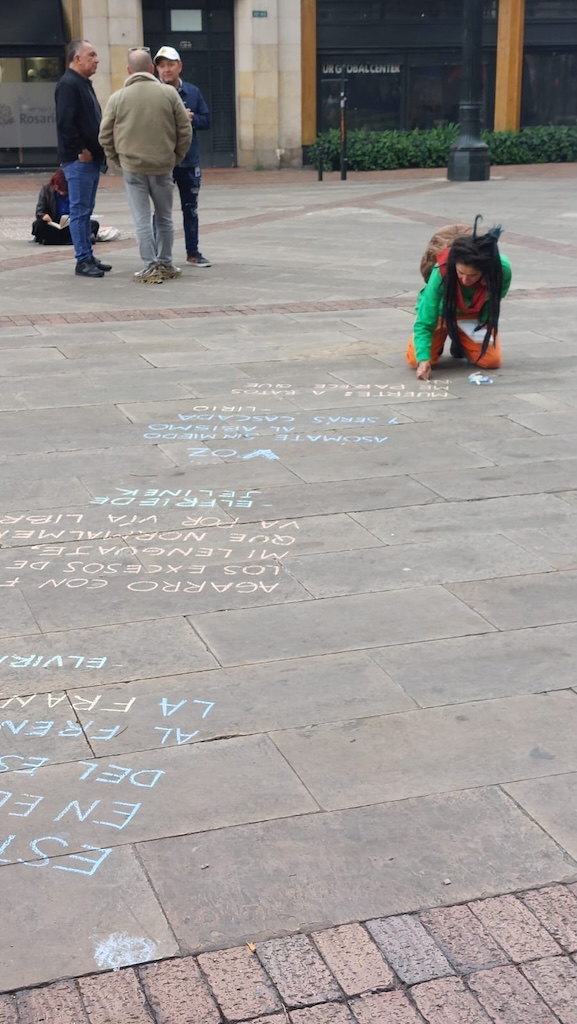 Rosario
UR GLOBAL CENTER
EST
EN ED
DEL ES
AL FREN
LA FRAN
-ELVIRA
AGARRO CON F
LOS EXCESOS DE
MI LENGUAJE,
QUE NORMALMEN
VA POR VÍA LIBR
-ELFRIEDE
JELINEK
VOZ
ASÓMATE SIN MIEDO
AL ABISMO
Y SERÁS CASCADA
-LIRIO
MUERTE: A RATOS
ME PARECE QUE